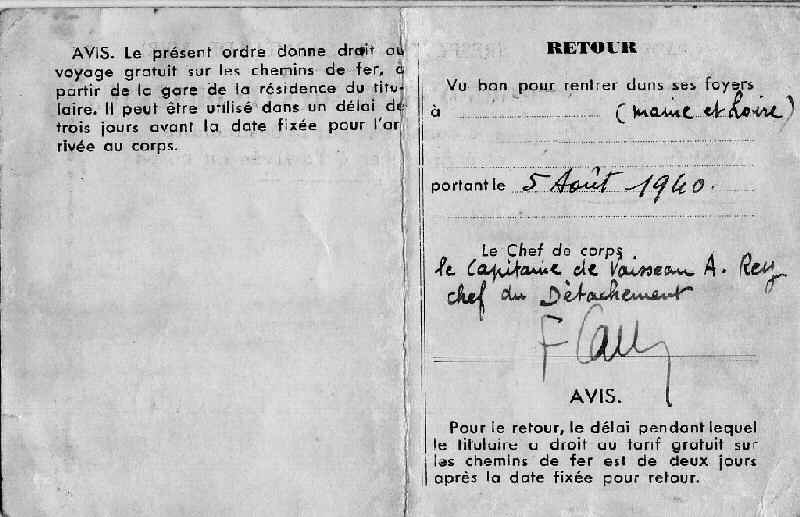 AVIS. Le présent ordre donne droit au
voyage gratuit sur les chemins de fer, à
partir de la gare de la résidence du titu-
laire. Il peut être utilisé dans un délai de
trois jours avant la date fixée pour l'ar
rivée au corps.
RETOUR
Vu bon pour rentrer dans ses foyers
à (Maine et Loire)
portant le 5 Août 1940.
Le Chef de corps,
le Capitaine de Vaisseau A. Rey
chef du Détachement
AVIS.
Pour le retour, le délai pendant lequel
le titulaire a droit au tarif gratuit sur
les chemins de fer est de deux jours
après la date fixée pour retour.